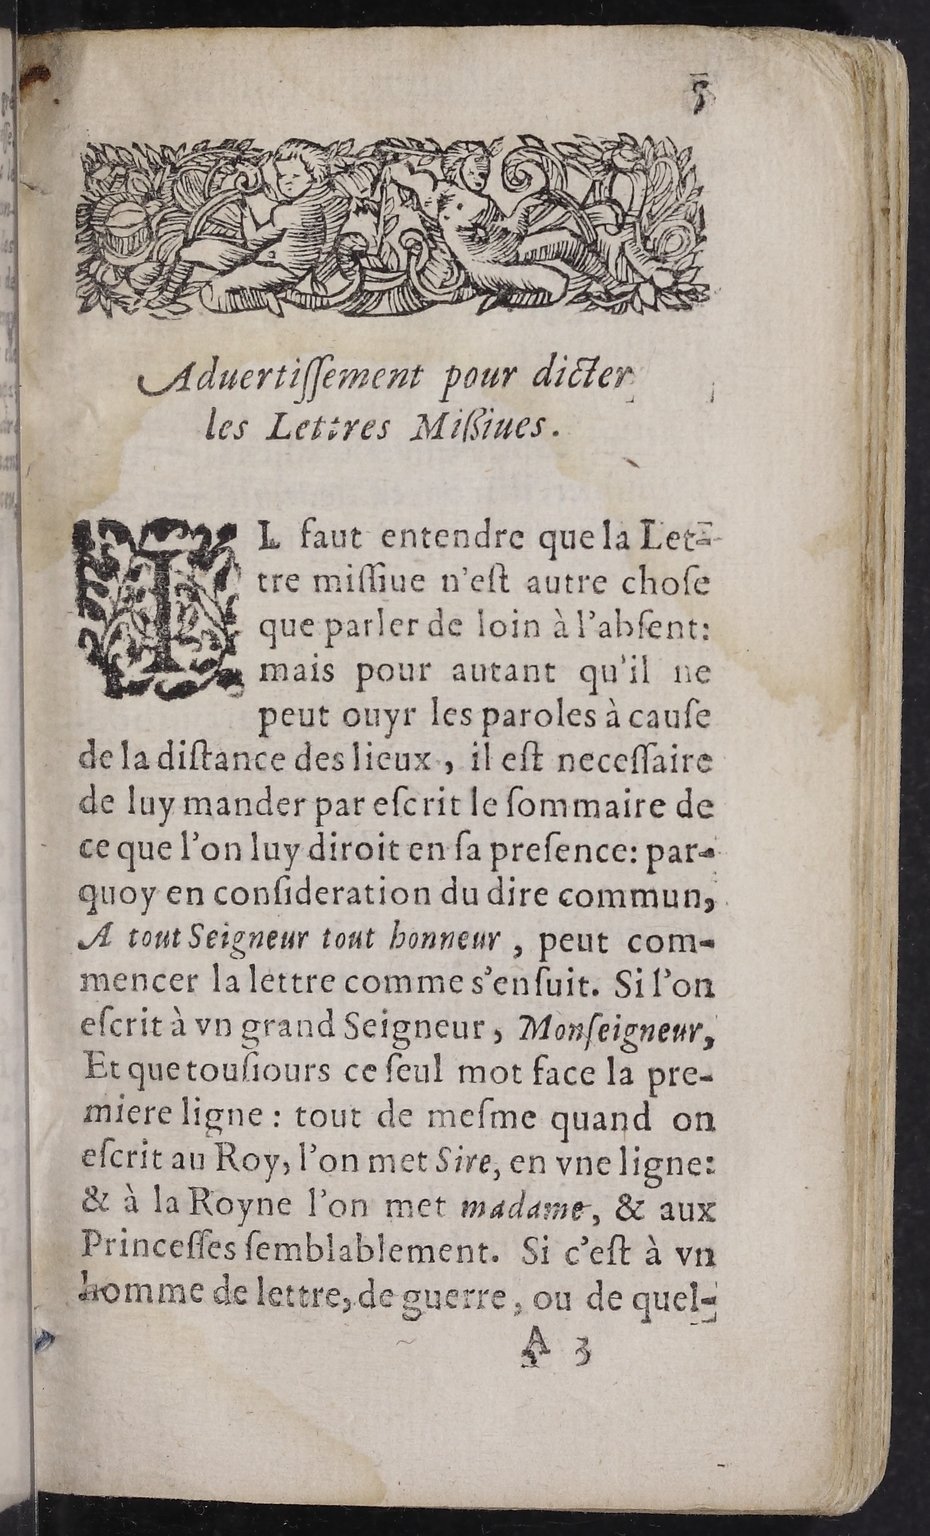 5
Aduertiſſement pour dicter
les Lettres Miſsiues.
IL faut entendre que la Let-
tre miſſiue n'eſt autre choſe
que parler de loin à l'abſent:
mais pour autant qu'il ne
peut ouyr les paroles à cauſe
de la diſtance des lieux, il eſt neceſſaire
de luy mander par eſcrit le ſommaire de
ce que l'on luy diroit en ſa preſence: par-
quoy en conſideration du dire commun,
A tout Seigneur tout honneur, peut com-
mencer la lettre comme s'enſuit. Si l'on
eſcrit à vn grand Seigneur, Monſeigneur,
Et que touſiours ce ſeul mot face la pre-
miere ligne: tout de meſme quand on
eſcrit au Roy, l'on met Sire, en vne ligne:
& à la Royne l'on met madame, & aux
Princeſſes ſemblablement. Si c'eſt à vn
homme de lettre, de guerre, ou de quel-
A 3